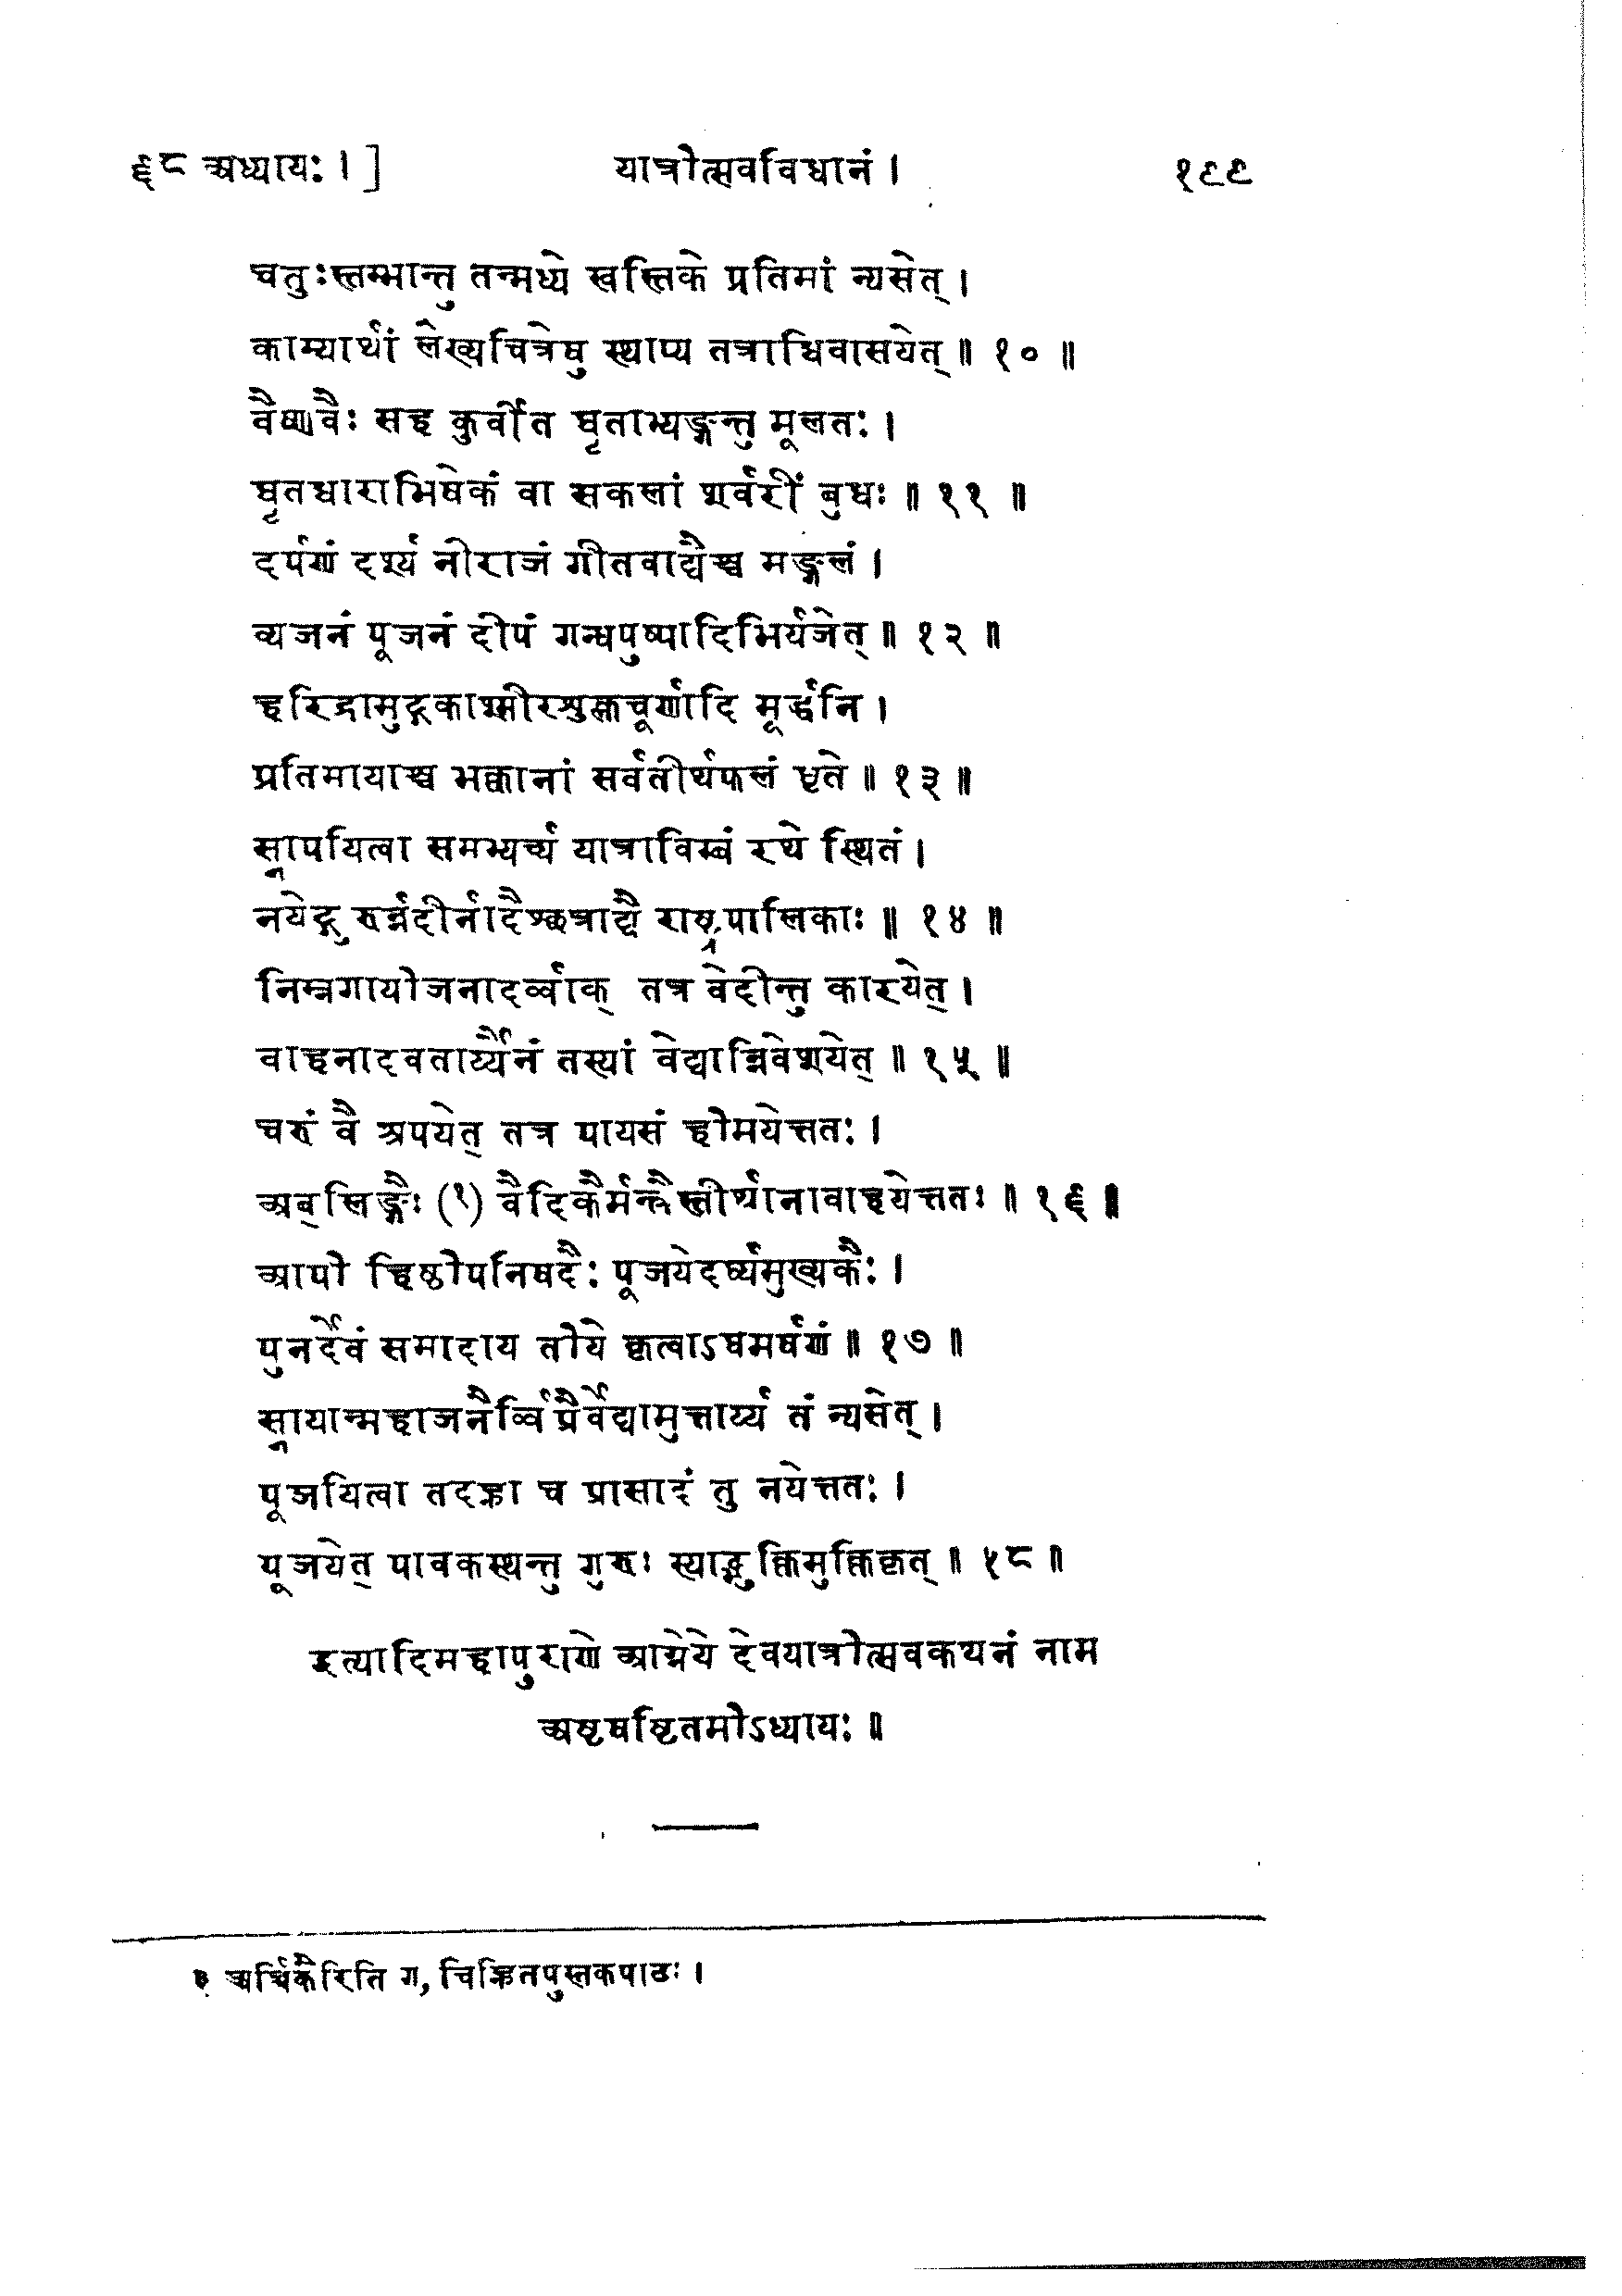 ६८ अध्यायः । ] यात्रोत्सवविधानं । १९९
चतुःस्तम्भान्तु तन्मध्ये स्वस्तिके प्रतिमां न्यसेत् ।
काम्यार्थां लेख्यचित्रेषु स्थाप्य तत्राधिवासयेत् ॥ १० ॥
वैष्णवैः सह कुर्वीत घृताभ्यङ्गन्तु मूलतः ।
घृतधाराभिषेकं वा सकलां शर्वरीं बुधः ॥ ११ ॥
दर्पणं दर्श्य नीराजं गीतवाद्यैश्च मङ्गलं ।
व्यजनं पूजनं दीपं गन्धपुष्पादिभिर्यजेत् ॥ १२ ॥
हरिद्रामुद्गकाश्मीरशुक्लचूर्णादि मूर्द्धनि ।
प्रतिमायाश्च भक्तानां सर्वतीर्थफलं धृते ॥ १३ ॥
स्नापयित्वा समभ्यर्च्य यात्राविम्बं रथे स्थितं ।
नयेद्गुरुर्न्नदीर्नादैश्छत्राद्यै राष्ट्रपालिकाः ॥ १४ ॥
निम्नगायोजनादर्व्वाक् तत्र वेदीन्तु कारयेत् ।
वाहनादवतार्य्यैनं तस्यां वेद्यान्निवेशयेत् ॥ १५ ॥
चरुं वै श्रपयेत् तत्र पायसं होमयेत्ततः ।
अब्लिङ्गैः (१) वैदिकैर्मन्त्रैस्तीर्थानावाहयेत्ततः ॥ १६ ॥
आपो हिष्ठोपनिषदैः पूजयेदर्घ्यमुख्यकैः ।
पुनर्देवं समादाय तोये कृत्वाऽघमर्षणं ॥ १७ ॥
स्नायान्महाजनैर्व्विप्रैर्वेद्यामुत्तार्य्य तं न्यसेत् ।
पूजयित्वा तदह्ना च प्रासादं तु नयेत्ततः ।
पूजयेत् पावकस्थन्तु गुरुः स्याद्भुक्तिमुक्तिकृत् ॥ १८ ॥
इत्यादिमहापुराणे आग्नेये देवयात्रोत्सवकथनं नाम
अष्टषष्टितमोऽध्यायः ॥
१ अर्च्चिकैरिति ग, चिह्नितपुस्तकपाठः ।